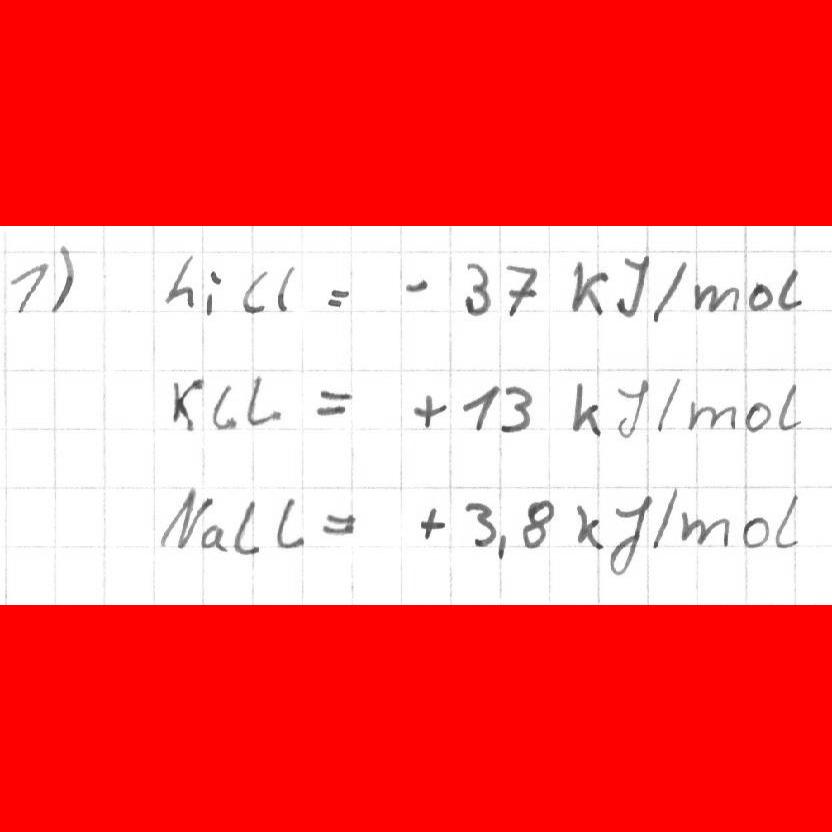 1) LiCl = - 37 kJ/mol
KCl = + 13 kJ/mol
NaCl = + 3,8 kJ/mol